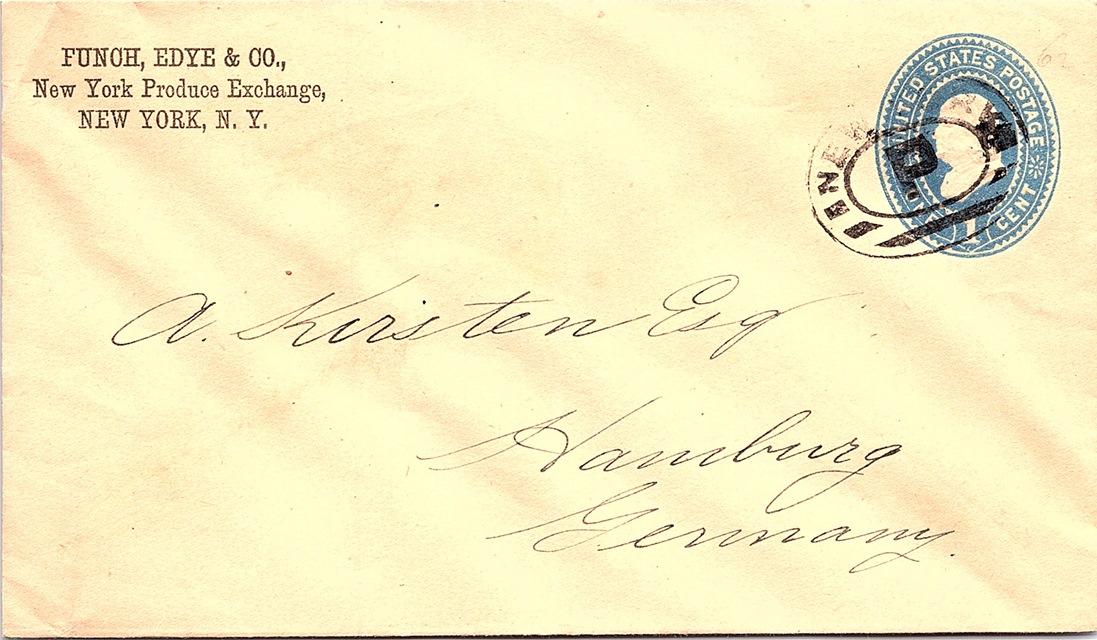 FUNCH, EDYE & CO.,
New York Produce Exchange,
NEW YORK, N. Y.
UNITED STATES POSTAGE
1 CENT
NEW
A. Kirsten Esq
Hamburg
Germany.